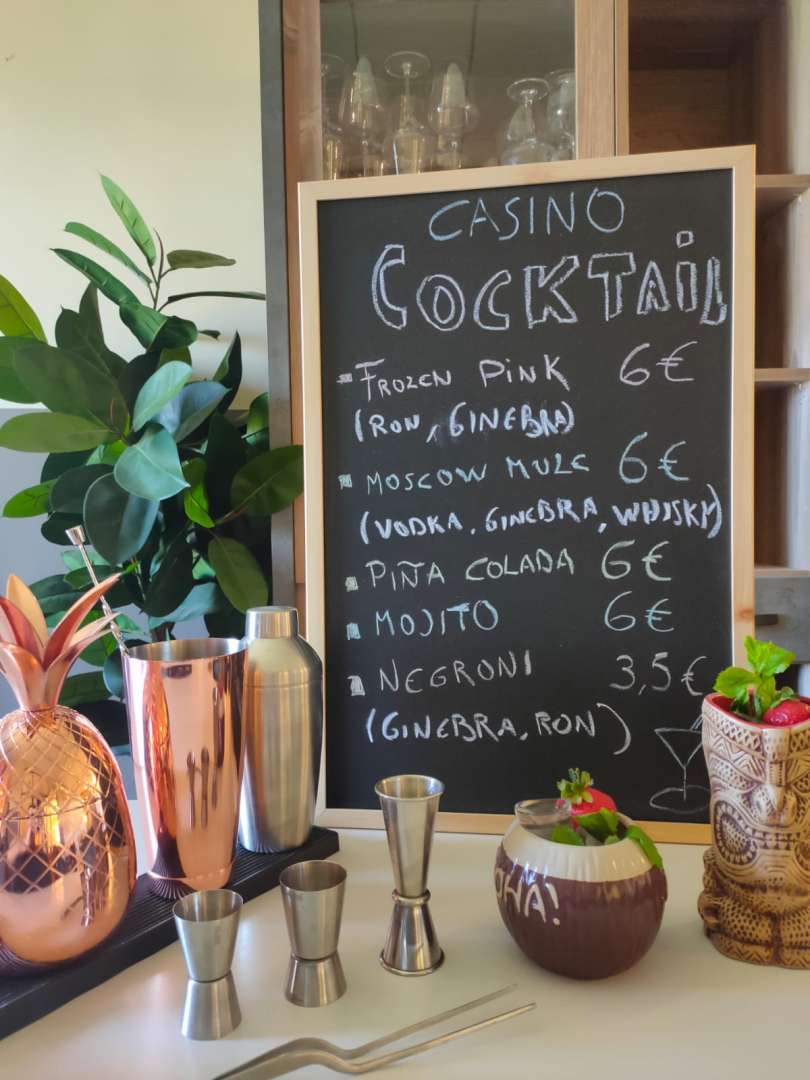 CASINO
COCKTAIL
- FROZEN PINK 6€
(RON, GINEBRA)
- MOSCOW MULE 6€
(VODKA, GINEBRA, WHISKY)
- PIÑA COLADA 6€
- MOJITO 6€
- NEGRONI 3,5€
(GINEBRA, RON)
OHA!